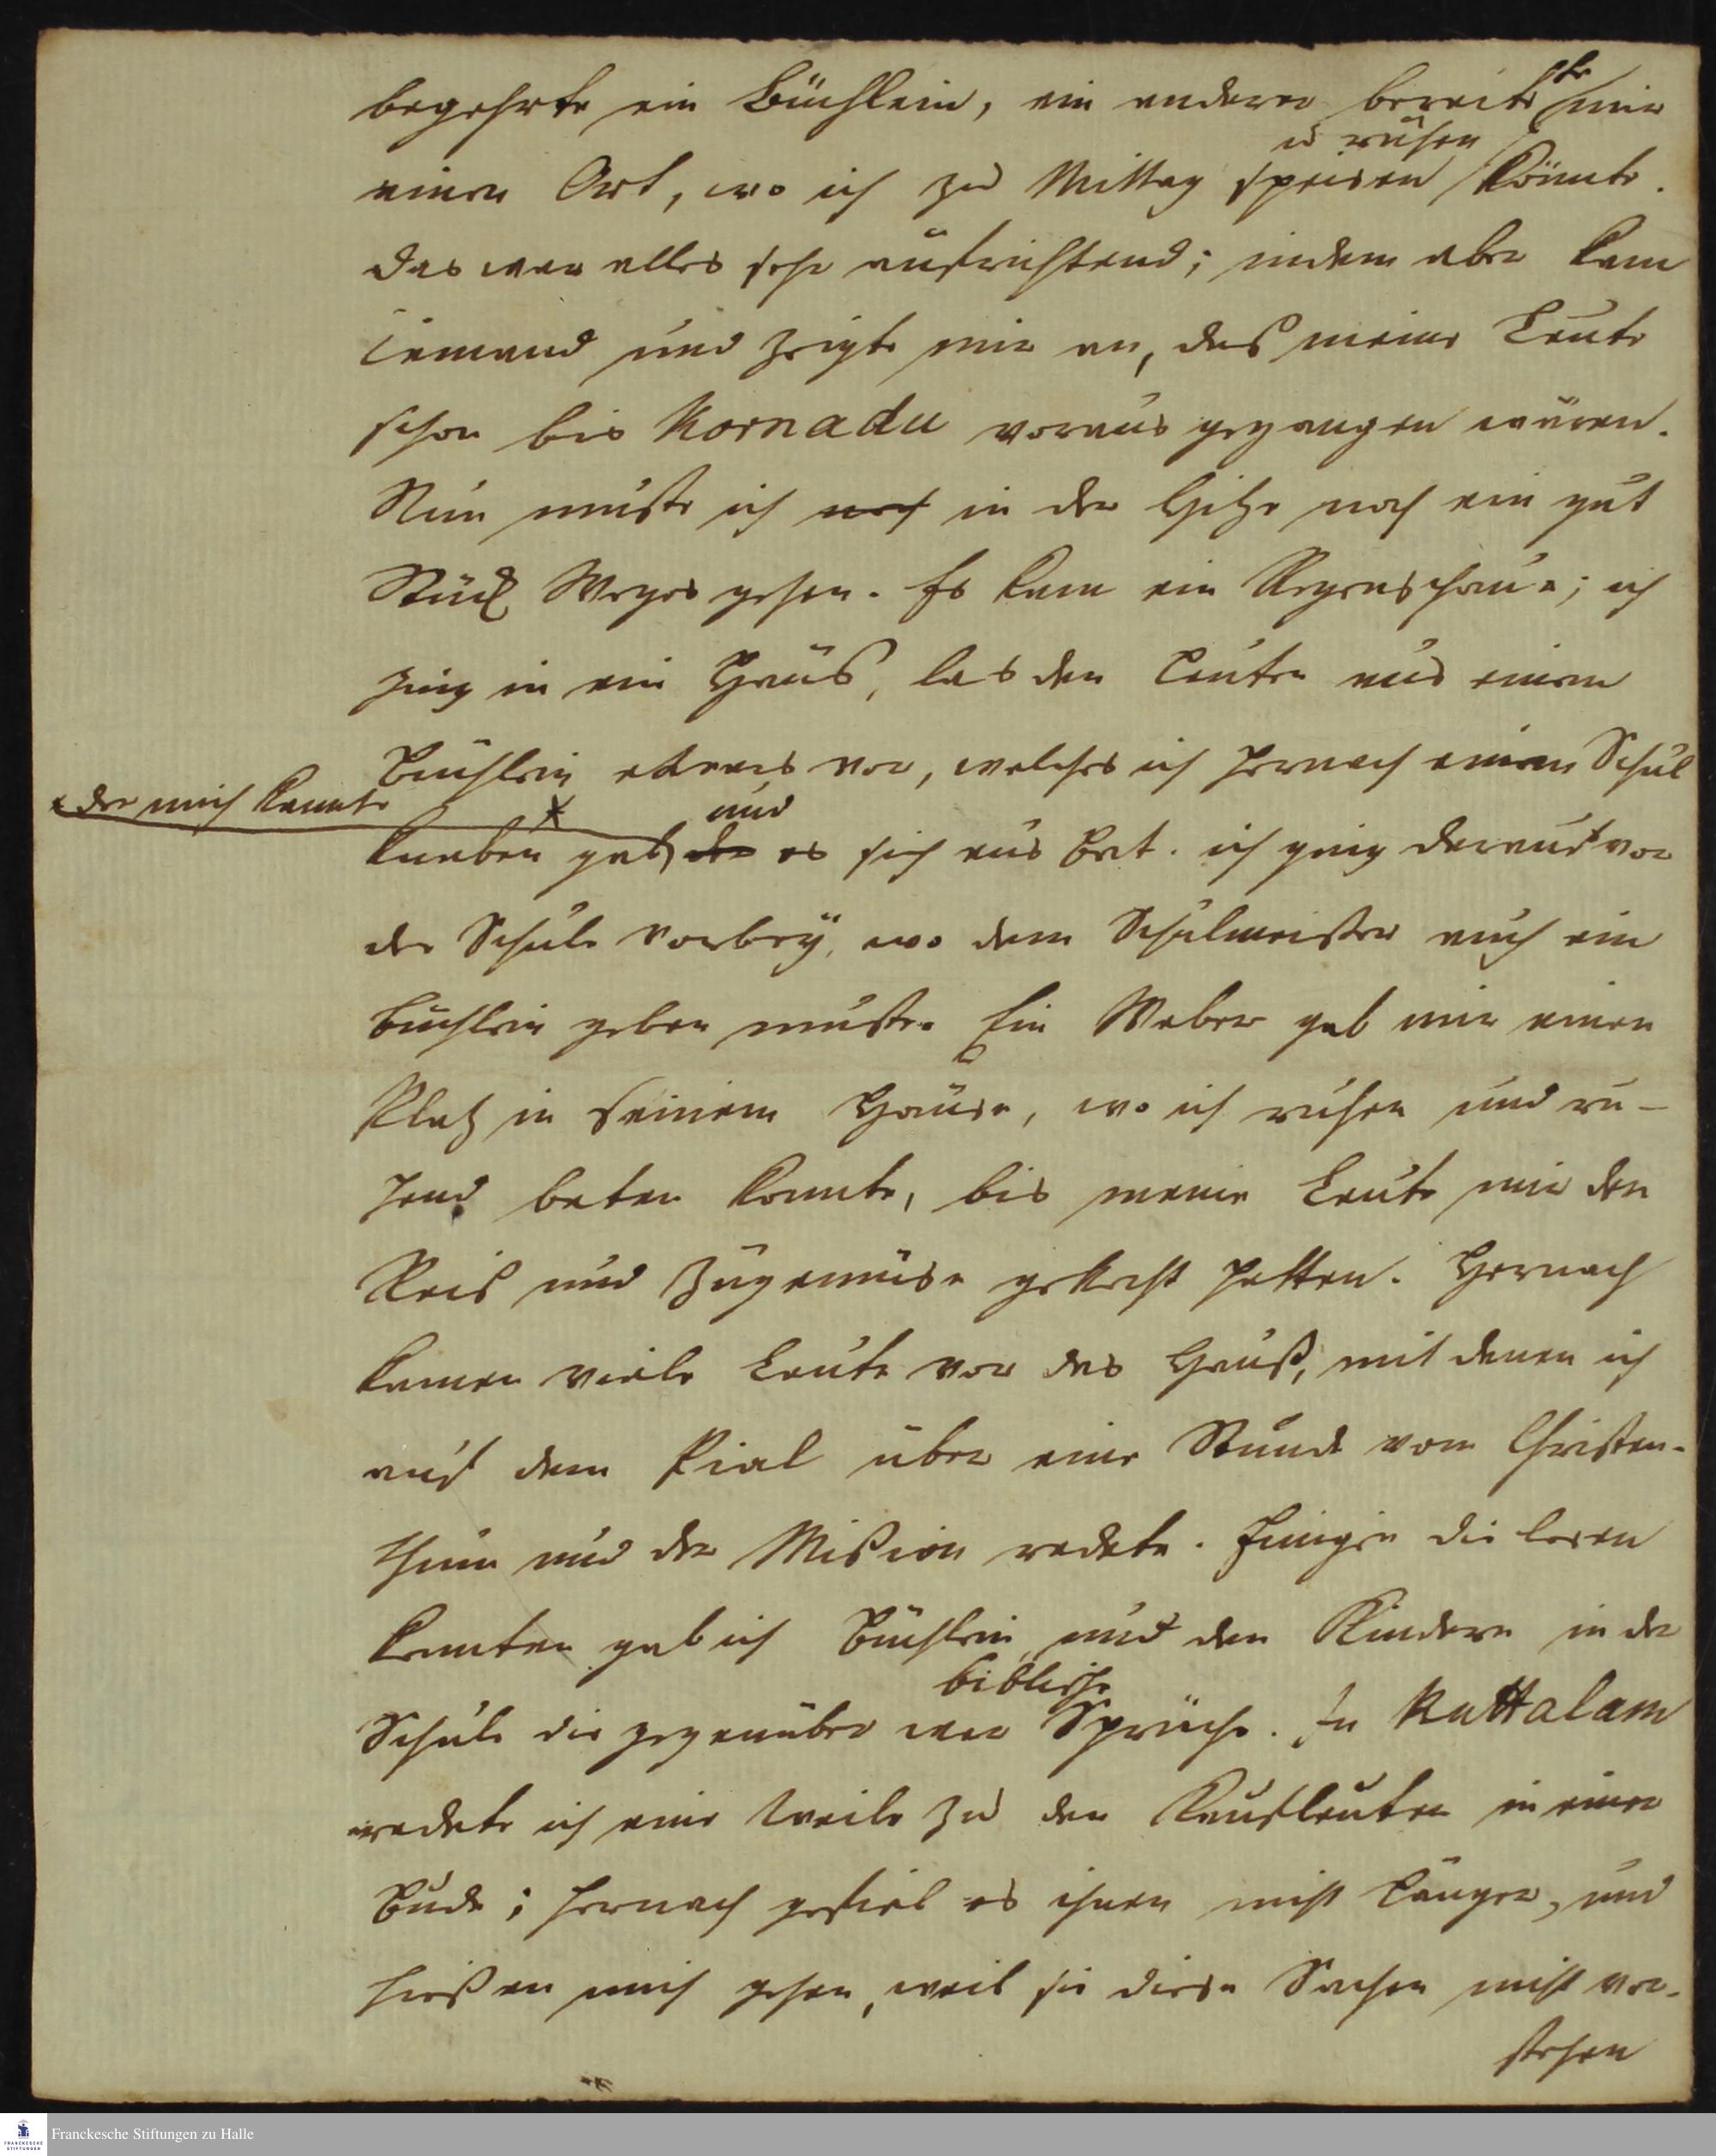 begehrte ein Büchlein, ein anderer bereitete mir
u ruhen
einen Ort, wo ich zu Mittag speisen könnte.
das war alles sehr aufrichtend; indem aber kam
iemand und zeigte mir an, daß meine Leute
schon bis Kornadu voraus gegangen wären.
Nun muste ich noch in der Hitze noch ein gut
Stück Weges gehen. Es kam ein Regenschaur; ich
ging in ein Hauß, las den Leuten aus einem
Büchlein etwas vor, welches ich hernach einem Schul
der mich kannte
und
knaben gab, der es sich aus bat. ich ging darauf vor
der Schule vorbey, wo dem Schulmeister auch ein
Büchlein geben muste. Ein Weber gab mir einen
Platz in seinem Hause, wo ich ruhen und ru-
hend beten konnte, bis meine Leute mir den
Reis und Zugemüse gekocht hatten. Hernach
kamen viele Leute vor das Hauß, mit denen ich
auf dem Pial über eine Stunde vom Christen-
thum und der Mißion redete. Einigen die lesen
konnten gab ich Büchlein und den Kindern in der
biblische
Schule die gegenüber war Sprüche. In Kuttalam
redete ich eine Weile zu den Kaufleuten in einer
Bude; hernach gefiel es ihnen nicht länger, und
hießen mich gehen, weil sie diese Sachen nicht ver-
stehen
Franckesche Stiftungen zu Halle